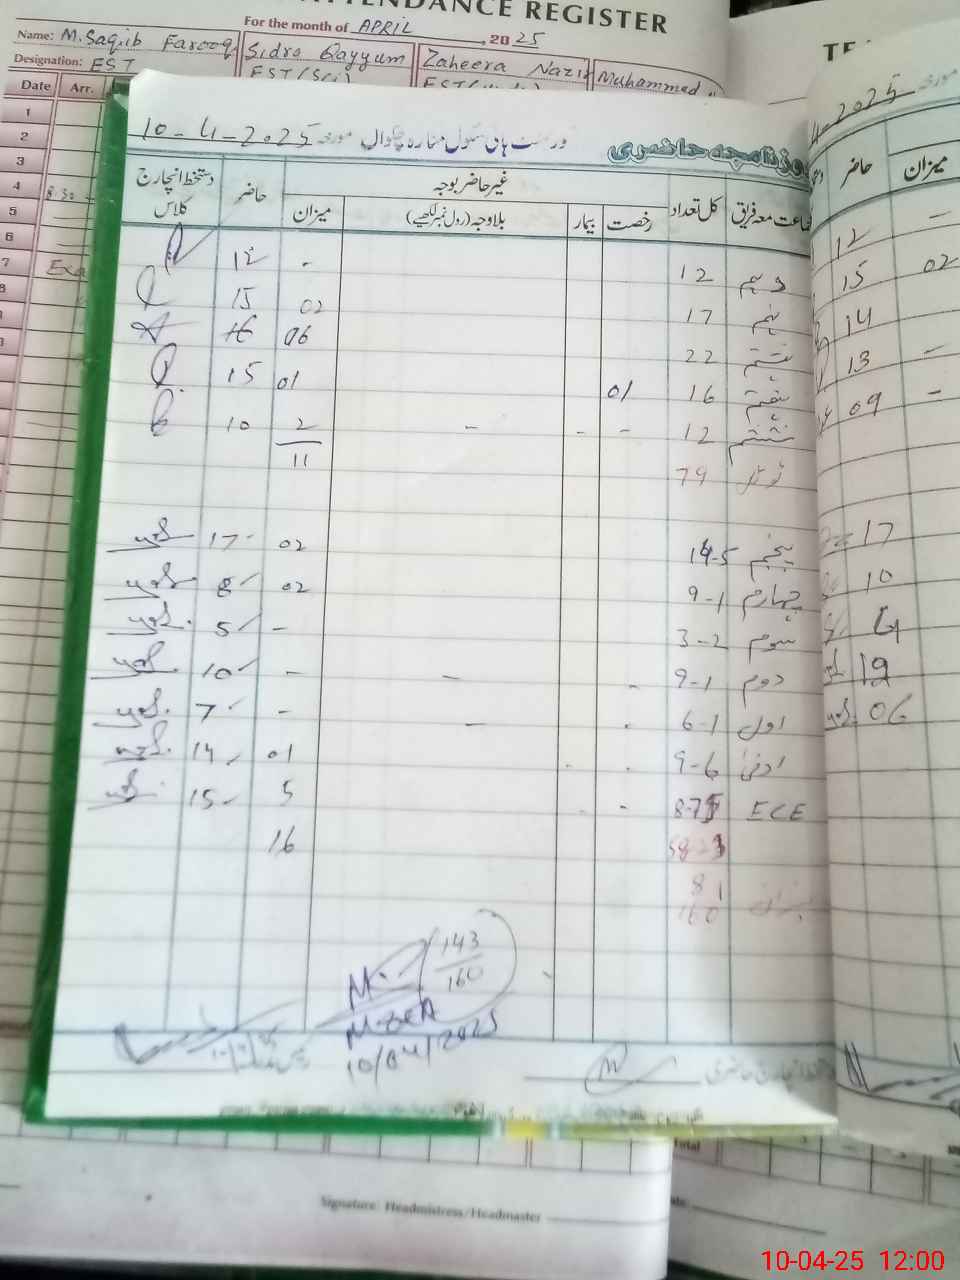 ATTENDANCE REGISTER
For the month of APRIL, 2025
Name: M.Saqib Farooq
Sidra Qayyum
Zaheera Nazir
Muhammed
Designation: EST
EST(Sci)
Date Arr.
1
2
3
4 8:30
5
6
7 Exa
10-4-2025 مورخہ گورنمنٹ ہائی سکول منارہ چکوال
روزنامچہ حاضری
جماعت معہ فریق کل تعداد غیر حاضر بوجہ حاضر دستخط انچارج کلاس
رخصت بیمار بلاوجہ (رول نمبر لکھیے) میزان
دہم 12 - 12
نہم 17 02 15
ہشتم 22 06 16
ہفتم 16 01 01 15
ششم 12 - - - 2 10
ٹوٹل 79 11
پنجم 14-5 02 17
چہارم 9-1 02 8
سوم 3-2 - 5
دوم 9-1 - - - 10
اول 6-1 - - 7
ادنیٰ 9-6 01 14
ECE 8-7 5 15
16
میزان 81
160
143
160
10/04/2025
دستخط انچارج حاضری
4-2025 مورخہ
حاضر میزان
12 -
15 02
14
13 -
09 -
17
10
4
19
06
Total
Signature: Headmistress/Headmaster
10-04-25 12:00